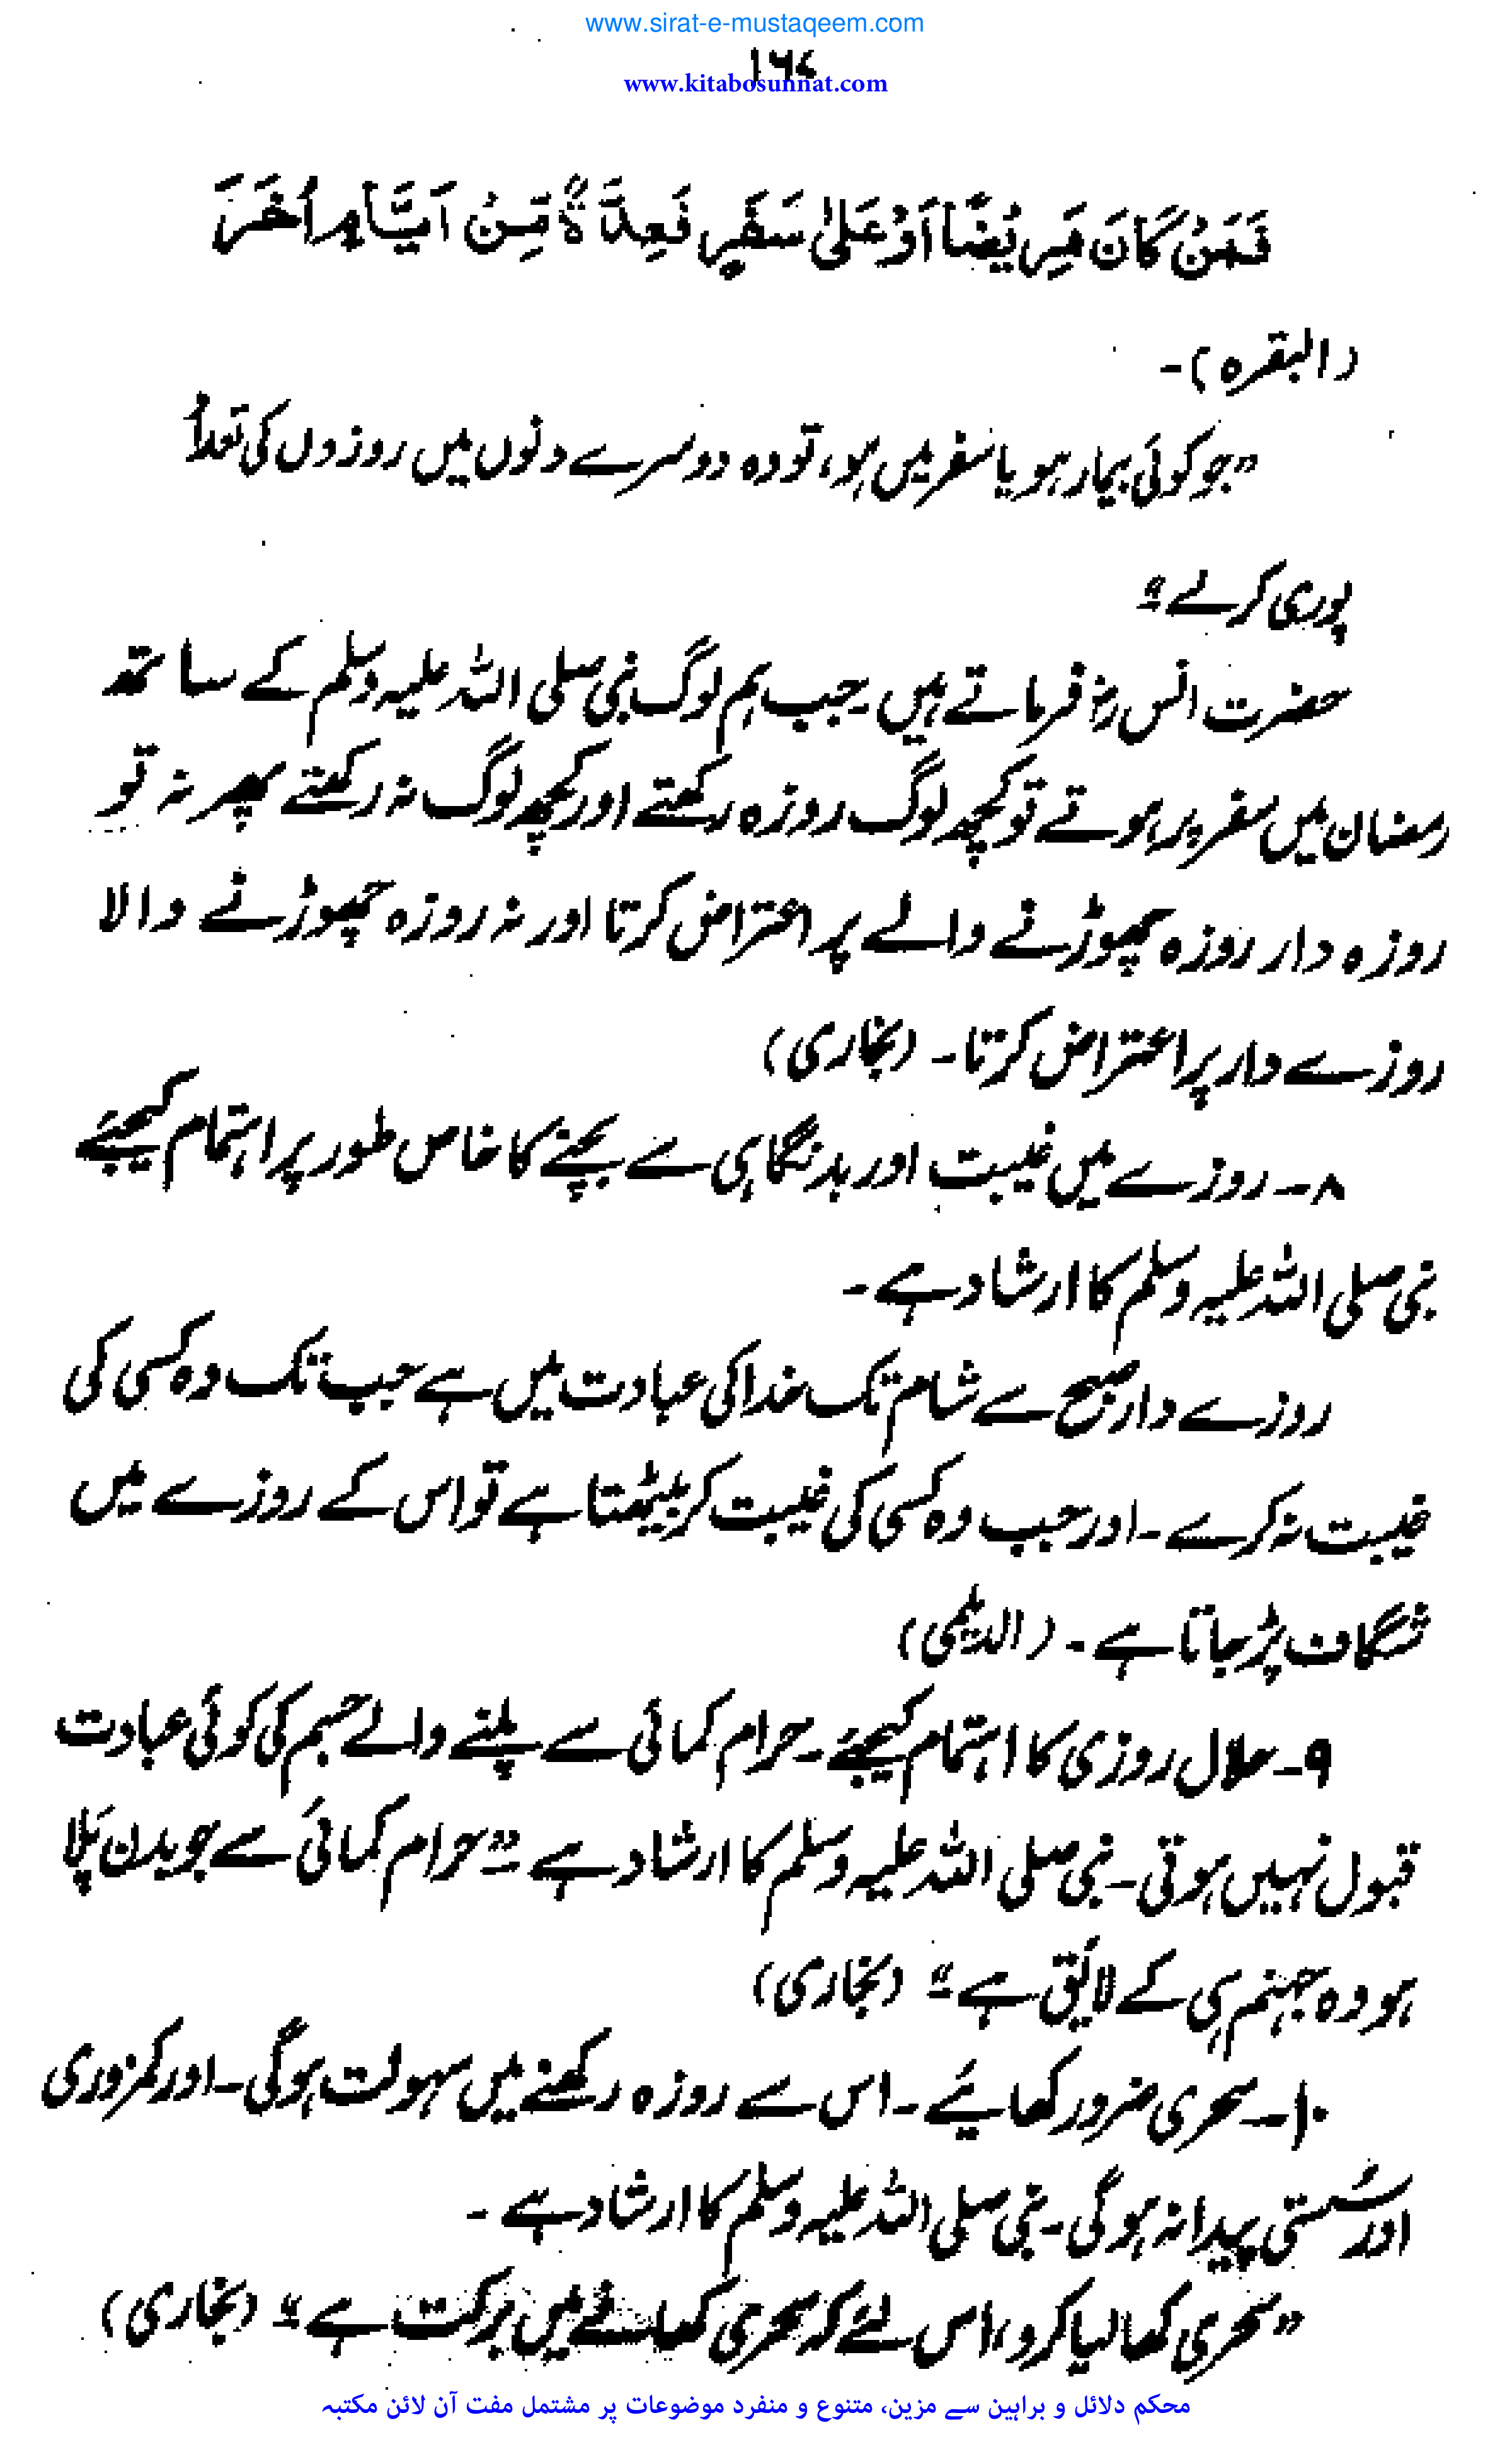 www.sirat-e-mustaqeem.com
۱۶۷
www.kitabosunnat.com
فَمَنْ كَانَ مَرِيْضًا اَوْ عَلٰى سَفَرٍ فَعِدَّةٌ مِّنْ اَيَّامٍ اُخَرَ
(البقرہ)۔
”جو کوئی بیمار ہو یا سفر میں ہو، تو وہ دوسرے دنوں میں روزوں کی تعداد
پوری کرلے“
حضرت انس رضؓ فرماتے ہیں۔ جب ہم لوگ نبی صلی اللہ علیہ وسلم کے ساتھ
رمضان میں سفر پر ہوتے تو کچھ لوگ روزہ رکھتے اور کچھ لوگ نہ رکھتے پھر نہ تو
روزہ دار روزہ چھوڑنے والے پر اعتراض کرتا اور نہ روزہ چھوڑنے والا
روزے دار پر اعتراض کرتا۔ (بخاری)
۸۔ روزے میں غیبت اور بدنگاہی سے بچنے کا خاص طور پر اہتمام کیجئے
نبی صلی اللہ علیہ وسلم کا ارشاد ہے۔
روزے دار صبح سے شام تک خدا کی عبادت میں ہے جب تک وہ کسی کی
غیبت نہ کرے۔ اور جب وہ کسی کی غیبت کر بیٹھتا ہے تو اس کے روزے میں
شگاف پڑ جاتا ہے۔ (الدیلمی)
۹۔ حلال روزی کا اہتمام کیجئے۔ حرام کمائی سے پلنے والے جسم کی کوئی عبادت
قبول نہیں ہوتی۔ نبی صلی اللہ علیہ وسلم کا ارشاد ہے ”حرام کمائی سے جو بدن پَلا
ہو وہ جہنم ہی کے لائق ہے“ (بخاری)
۱۰۔ سحری ضرور کھایئے۔ اس سے روزہ رکھنے میں سہولت ہوگی۔ اور کمزوری
اور سُستی پیدا نہ ہوگی۔ نبی صلی اللہ علیہ وسلم کا ارشاد ہے۔
”سحری کھا لیا کرو، اس لئے کہ سحری کھانے میں برکت ہے“ (بخاری)
محکم دلائل و براہین سے مزین، متنوع و منفرد موضوعات پر مشتمل مفت آن لائن مکتبہ